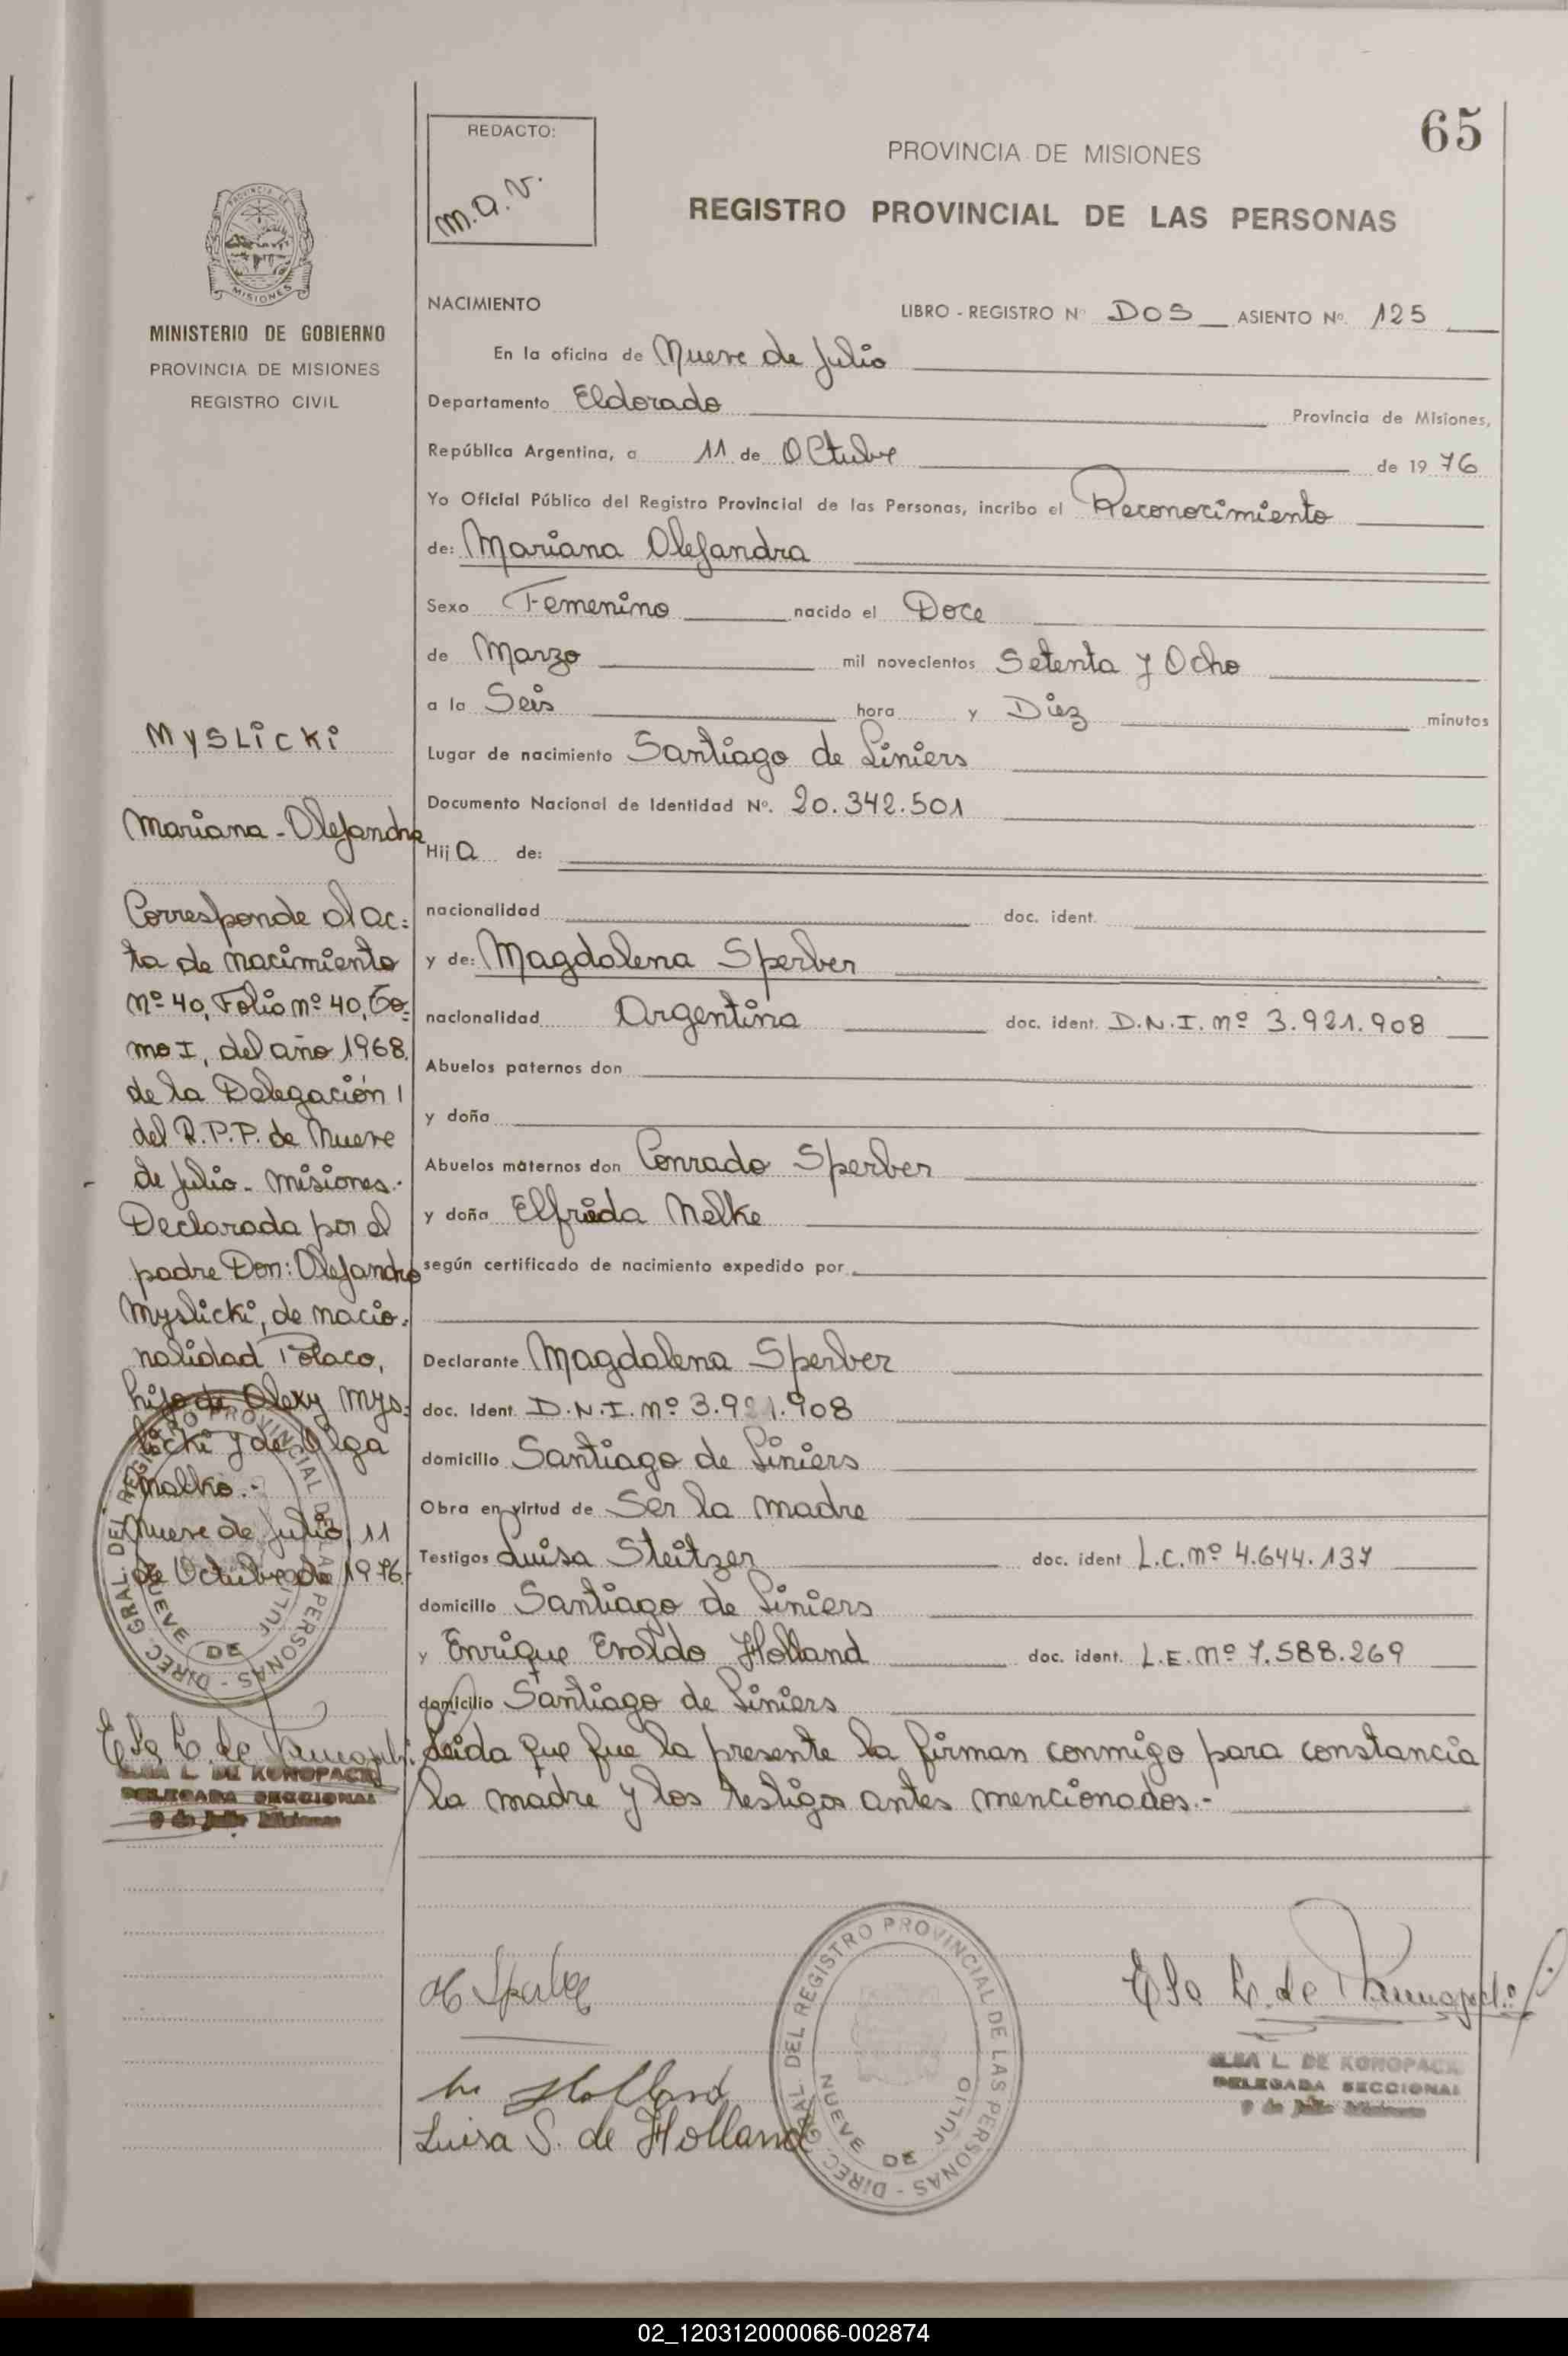 65
REDACTO:
m.a.v.
PROVINCIA DE MISIONES
REGISTRO PROVINCIAL DE LAS PERSONAS
PROVINCIA DE MISIONES
MINISTERIO DE GOBIERNO
PROVINCIA DE MISIONES
REGISTRO CIVIL
NACIMIENTO LIBRO - REGISTRO Nº DOS ASIENTO Nº. 125
En la oficina de Nueve de Julio
Departamento Eldorado Provincia de Misiones,
República Argentina, a 11 de Octubre de 19 76
Yo Oficial Público del Registro Provincial de las Personas, incribo el Reconocimiento
de: Mariana Alejandra
Sexo Femenino nacido el Doce
de Marzo mil novecientos Setenta y Ocho
a la Seis hora y Diez minutos
Lugar de nacimiento Santiago de Liniers
Documento Nacional de Identidad Nº. 20.342.501
Hij a de:
nacionalidad doc. ident.
y de: Magdalena Sperber
nacionalidad Argentina doc. ident. D.N.I. nº 3.921.908
Abuelos paternos don
y doña
Abuelos maternos don Conrado Sperber
y doña Elfrida Nelke
según certificado de nacimiento expedido por
Declarante Magdalena Sperber
doc. Ident. D.N.I. nº 3.921.908
domicilio Santiago de Liniers
Obra en virtud de Ser la madre
Testigos Luisa Steitzer doc. ident L.C. nº 4.644.137
domicilio Santiago de Liniers
y Enrique Evaldo Holland doc. ident. L.E. nº 7.588.269
domicilio Santiago de Liniers
Leida que fue la presente la firman conmigo para constancia
la madre y los testigos antes mencionados.-
MYSLICKI
Mariana - Alejandra
Corresponde al ac=
ta de nacimiento
nº 40, Folio nº 40, To=
mo I, del año 1968.
de la Delegación
del R.P.P. de Nueve
de Julio - Misiones.-
Declarada por el
padre Don: Alejandro
Myslicki, de nacio=
nalidad Polaco,
hijo de Alexy Mys=
licki y de Olga
Malko.-
Nueve de Julio, 11
de Octubre de 1976.
DIREC. GRAL. DEL REGISTRO PROVINCIAL DE LAS PERSONAS -
NUEVE DE JULIO
ELSA L. DE KONOPACKI
DELEGADA SECCIONAL
9 de Julio Misiones
M Sperber
Holland
Luisa S. de Holland
DIREC. GRAL. DEL REGISTRO PROVINCIAL DE LAS PERSONAS -
NUEVE DE JULIO
ELSA L. DE KONOPACKI
DELEGADA SECCIONAL
9 de Julio Misiones
02_120312000066-002874